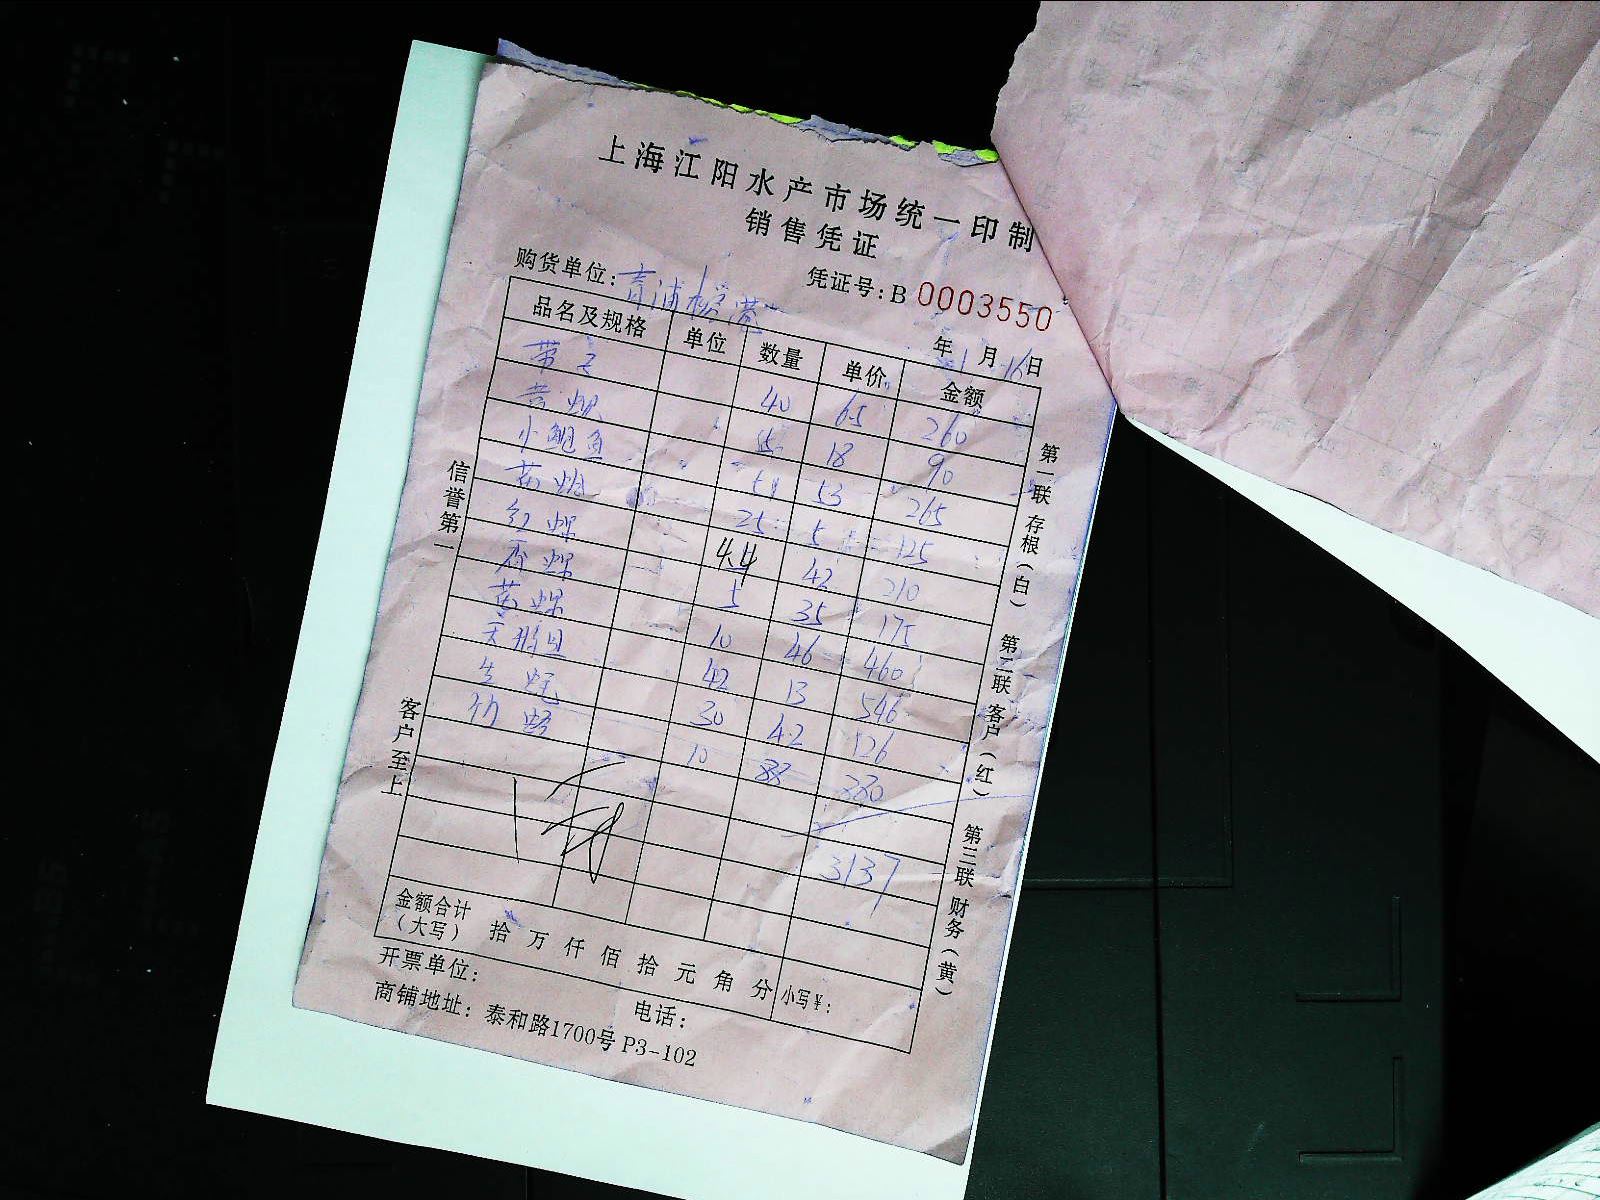 上海江阳水产市场统一印制
销售凭证
购货单位: 青浦
凭证号: B 0003550
年 1 月 16 日
品名及规格 单位 数量 单价 金额
带子 40 6.5 260
18 90
小鲍鱼 53 265
花蛤 25 5 125
红螺 4.4 42 210
香螺 5 35 175
黄螺 10 46 460
天鹅旦 42 13 546
生蚝 30 4.2 126
竹蛏 10 33 330
3137
金额合计 (大写) 拾 万 仟 佰 拾 元 角 分 小写¥:
开票单位: 电话:
商铺地址: 泰和路1700号 P3-102
信誉第一
客户至上
第一联 存根(白) 第二联 客户(红) 第三联 财务(黄)